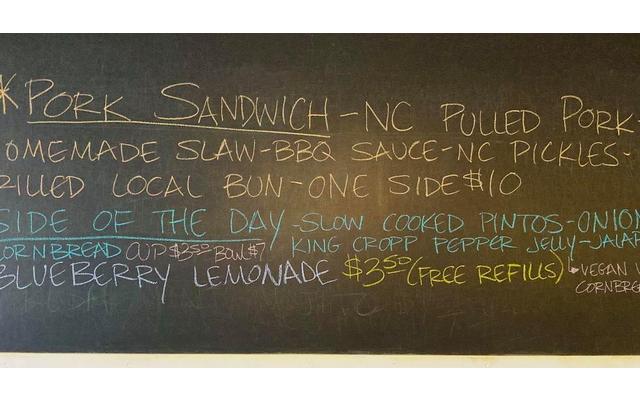 * PORK SANDWICH - NC PULLED PORK-
OMEMADE SLAW-BBQ SAUCE-NC PICKLES-
RILLED LOCAL BUN-ONE SIDE $10
SIDE OF THE DAY-SLOW COOKED PINTOS-ONION
CORNBREAD CUP $3.50 BOWL $7 KING CROPP PEPPER JELLY-JALAP
BLUEBERRY LEMONADE $3.50 (FREE REFILLS) VEGAN
CORNBRE